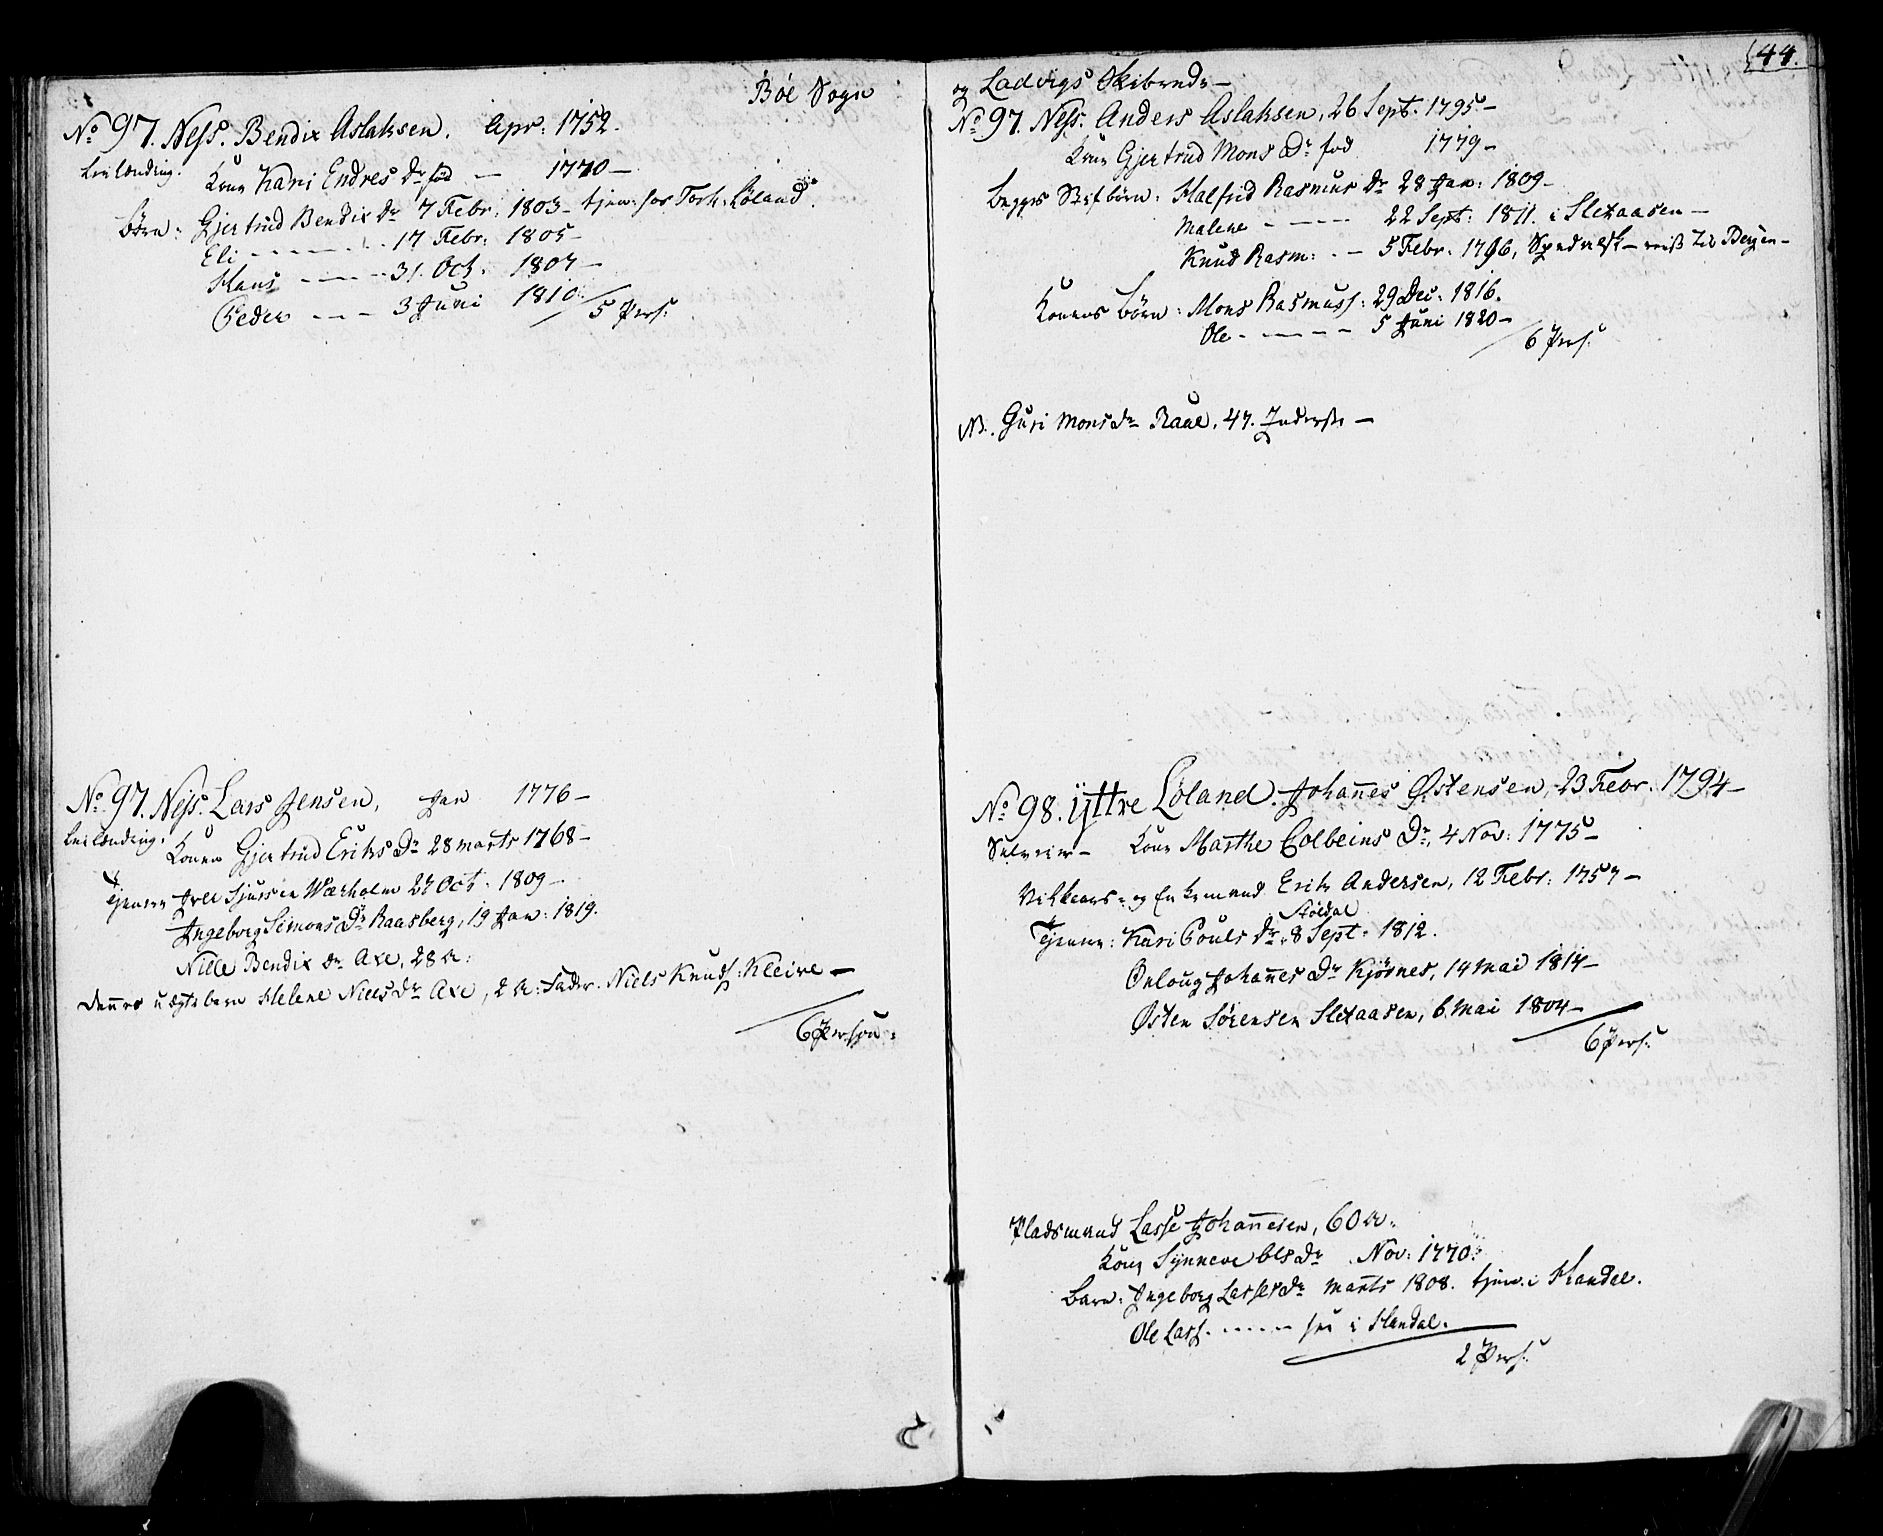 Böe Sogn
No 97. Ness. Bendix Aslaksen. Apr: 1752.
Leilænding. Kone Kari Endres Dr fød — 1770 —
Börn: Gjertrud Bendix Dr 7 Febr: 1803 - tjen: hos Tork: Löland.
Eli - - - - - 17 Febr: 1805 -
Hans - - - - 31. Oct. 1807 -
Peder - - - 3 Juni 1810.
5 Pers:
No 97. Ness. Lars Jensen, Jan 1776 -
Leilænding. Konen Gjertrud Eriks Dr 28 marts 1768 -
Tjenere Iver Sjursen Wærholm 27 Oct. 1809 -
Ingeborg Simons Dr Raasberg, 19 Jan: 1819.
Nille Bendix Dr Axe, 28 A:
Dennes uægte barn Helene Niels Dr Axe, 2 A: Fader. Niels Knuds: Kleive -
6 Person:
44.
og Ladvigs Skibrede -
No 97. Ness. Anders Aslaksen, 26 Sept. 1795 -
Kone Gjertrud Mons Dr fød 1779 -
Begges Stifbörn: Halfrid Rasmus Dr 28 Jan: 1809 -
Malene - - - - 22 Sept: 1811. i Slexaasen -
Knud Rasm: - - 5 Febr. 1796, - reist til Bergen -
Konens börn: Mons Rasmuss: 29 Dec: 1816.
Ole - - - - - 5 Juni 1820 -
6 Pers:
NB. Guri Mons Dr Raae, 47. Inderste -
No 98. yttre Löland. Johañes Østensen, 23 Febr. 1794 -
Selveier - Kone Marthe Colbeins Dr, 4 Nov: 1775 -
Vilkaars- og Enkemand Erik Andersen, 12 Febr: 1757 -
Stöldal
Tjenere: Kari Pouls Dr, 8 Sept. 1812.
Ønloug Johañes Dr Kjörnes, 14 mai 1817 -
Østen Sörensen Slexaasen, 6 mai 1804 -
6 Pers:
Pladsmand Lasse Johañesen, 60 A.
Kone Synneve Ols Dr Nov: 1770.
Barn: Ingeborg Lasses Dr marts 1808. tjen: i Handal.
Ole Lass. - - - - i Handal.
2 Pers: